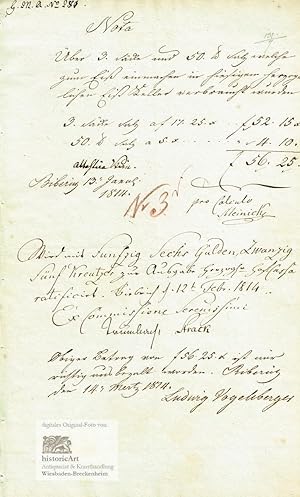 G. N. a. No 281
Nota
Über 3. Säcke und 50. lb Salz welche
zum Eiß einmachen in hiesigem herzog-
lichen Eiß Keller verbraucht wurden
3. Säcke Salz a f 17. 25 x f 52. 15 x
50. lb Salz a 5 x 4. 10.
f 56. 25
Biberich 13t Januar
1814.
Nr 3
pro Calculo
Meinicke
Wird mit Funfzig Sechs Gulden, Zwanzig
Funf Kreutzer zur Ausgabe
ratificirt. Biebrich d. 12t Febr. 1814.
Ex Commissione Serenissimi
Obiger Betrag von f 56. 25 x ist mir
richtig bezahlt worden. Biberich
den 14t Mertz 1814.
Ludwig Vogelsberger
digitales Original-Foto von
historicArt
Antiquariat & Kunsthandlung
Wiesbaden-Breckenheim